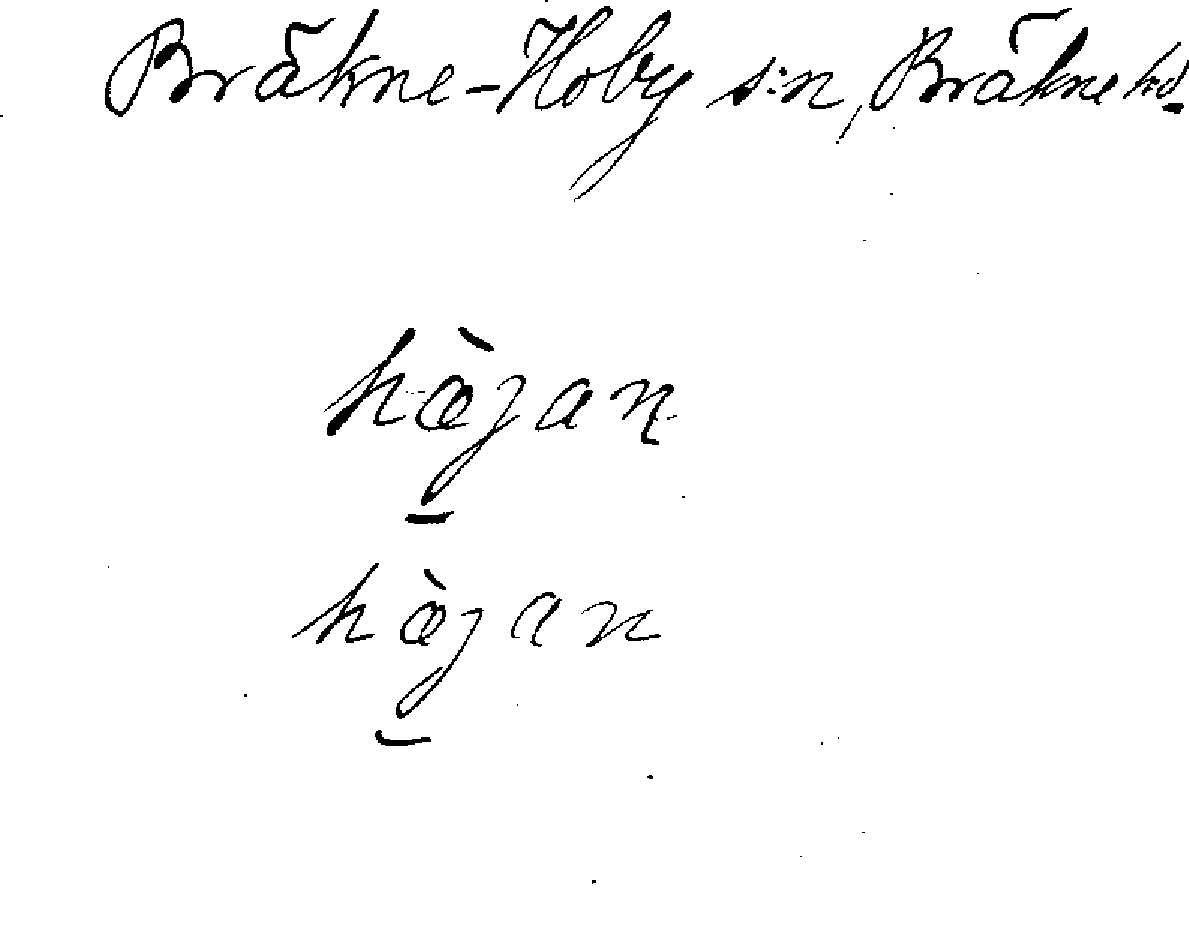 Bräkne-Hoby s:n, Bräkne hd
hœ̀jan
hœ̀jan